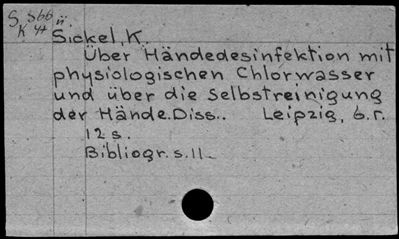 S 566 ü.
K 44
Sickel, K.
Über Händedesinfektion mit
physiologischen Chlorwasser
und über die Selbstreinigung
der Hände. Diss.. Leipzig, b.r.
12 s.
Bibliogr. s. 11.